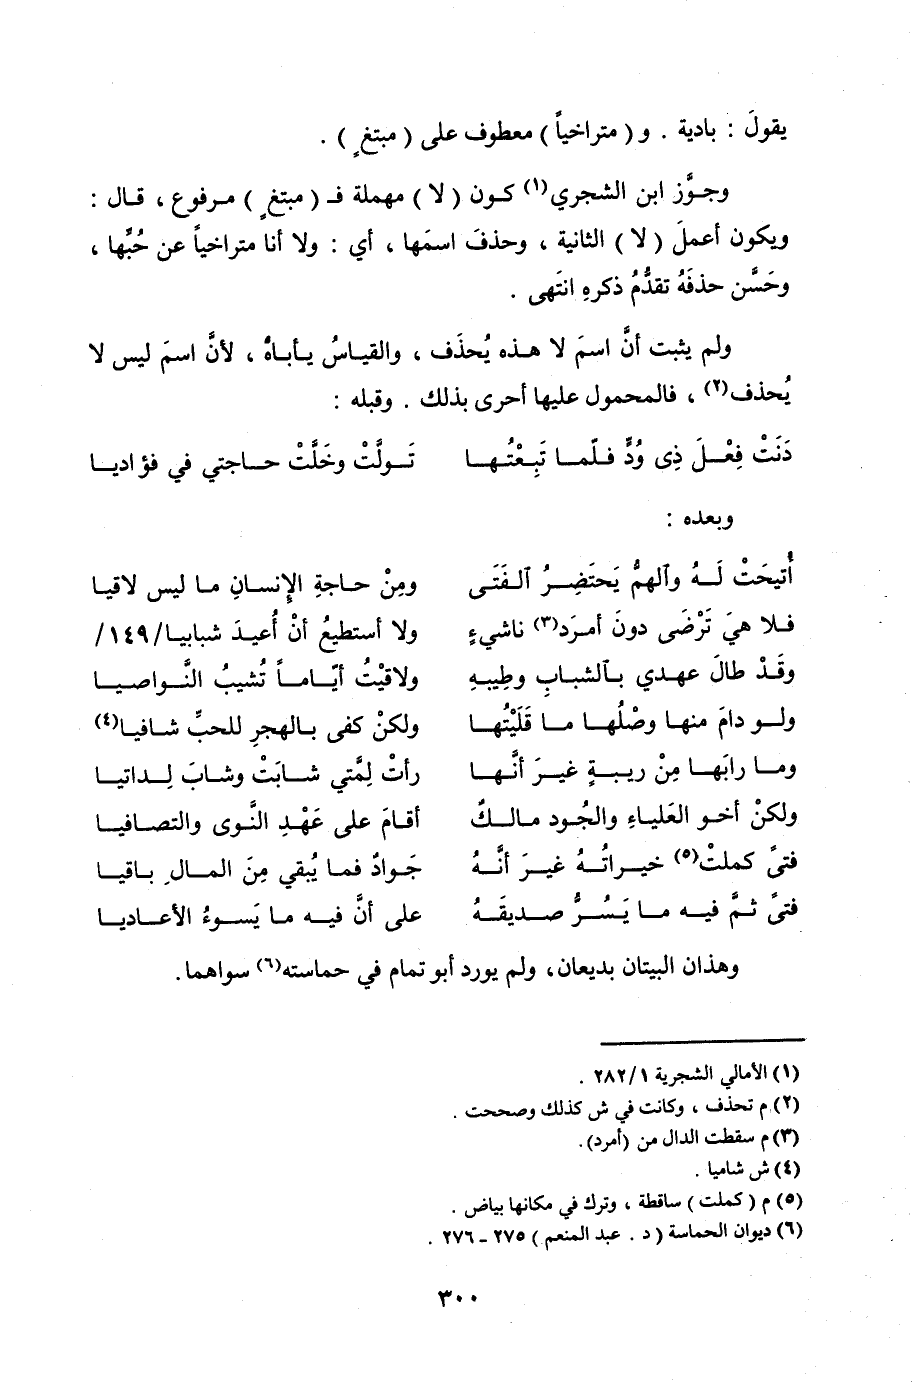 يقولَ : بادية . و ( متراخياً ) معطوف على ( مبتغٍ ) .
وجوَّز ابن الشجري(١) كون ( لا ) مهملة فـ ( مبتغٍ ) مرفوع ، قال :
ويكون أعملَ ( لا ) الثانية ، وحذفَ اسمَها ، أي : ولا أنا متراخياً عن حُبِّها ،
وحَسَّن حذفَهُ تقدُّمُ ذكرهِ انتَهى .
ولم يثبت أنَّ اسمَ لا هذه يُحذَف ، والقياسُ يأباهُ ، لأنَّ اسمَ ليس لا
يُحذف(٢) ، فالمحمول عليها أحرى بذلك . وقبله :
دَنَتْ فِعْلَ ذِى وُدٍّ فلّما تَبِعْتُها تَولَّتْ وخَلَّتْ حاجتي في فؤاديا
وبعده :
أُتيحَتْ لَهُ وٱلهمُّ يَحتَضِرُ ٱلفَتَى ومِنْ حاجةِ الإنسانِ ما ليس لاقيا
فلا هيَ تَرْضَى دونَ أمرَد(٣) ناشيءٍ ولا أستطيعُ أنْ أُعيدَ شبابيا/١٤٩/
وقَدْ طالَ عهدي بٱلشبابِ وطِيبهِ ولاقيْتُ أيّاماً تُشيبُ النَّواصيا
ولو دامَ منها وصْلُها ما قَلَيْتُها ولكنْ كفى بالهجرِ للحبِّ شافيا(٤)
وما رابَها مِنْ ريبةٍ غيرَ أنَّها رأتْ لِمَّتي شابَتْ وشابَ لِداتيا
ولكنْ أخو العَلياءِ والجُود مالكٌ أقامَ على عَهْدِ النَّوى والتصافيا
فتىً كملتْ(٥) خيراتُهُ غيرَ أنَّهُ جَوادٌ فما يُبقي مِنَ المالِ باقيا
فتىً ثمَّ فيه ما يَسُرُّ صديقَهُ على أنَّ فيه ما يَسوءُ الأعاديا
وهذان البيتان بديعان، ولم يورد أبو تمام في حماسته(٦) سواهما.
(١) الأمالي الشجرية ٢٨٢/١ .
(٢) م تحذف ، وكانت في ش كذلك وصححت .
(٣) م سقطت الدال من (أمرد).
(٤) ش شاميا .
(٥) م ( كملت ) ساقطة ، وترك في مكانها بياض .
(٦) ديوان الحماسة ( د . عبد المنعم ) ٢٧٥ ـ ٢٧٦ .
٣٠٠